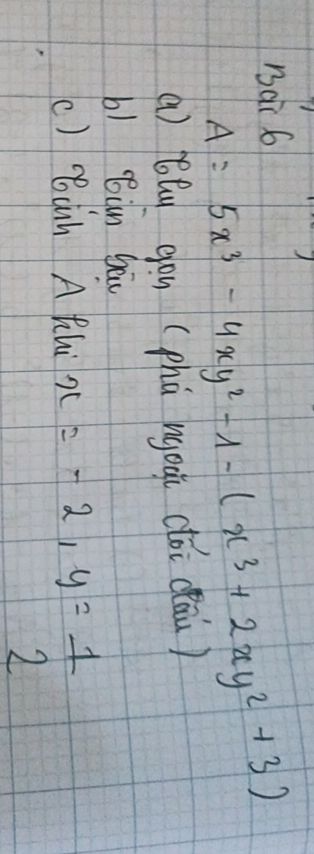 Bài 6
A = 5x³ - 4xy² - 1 - (x³ + 2xy² + 3)
a) Thu gọn (phá ngoặc đổi dấu)
b) Tìm bậc
c) Tính A khi x = -2, y = 1/2